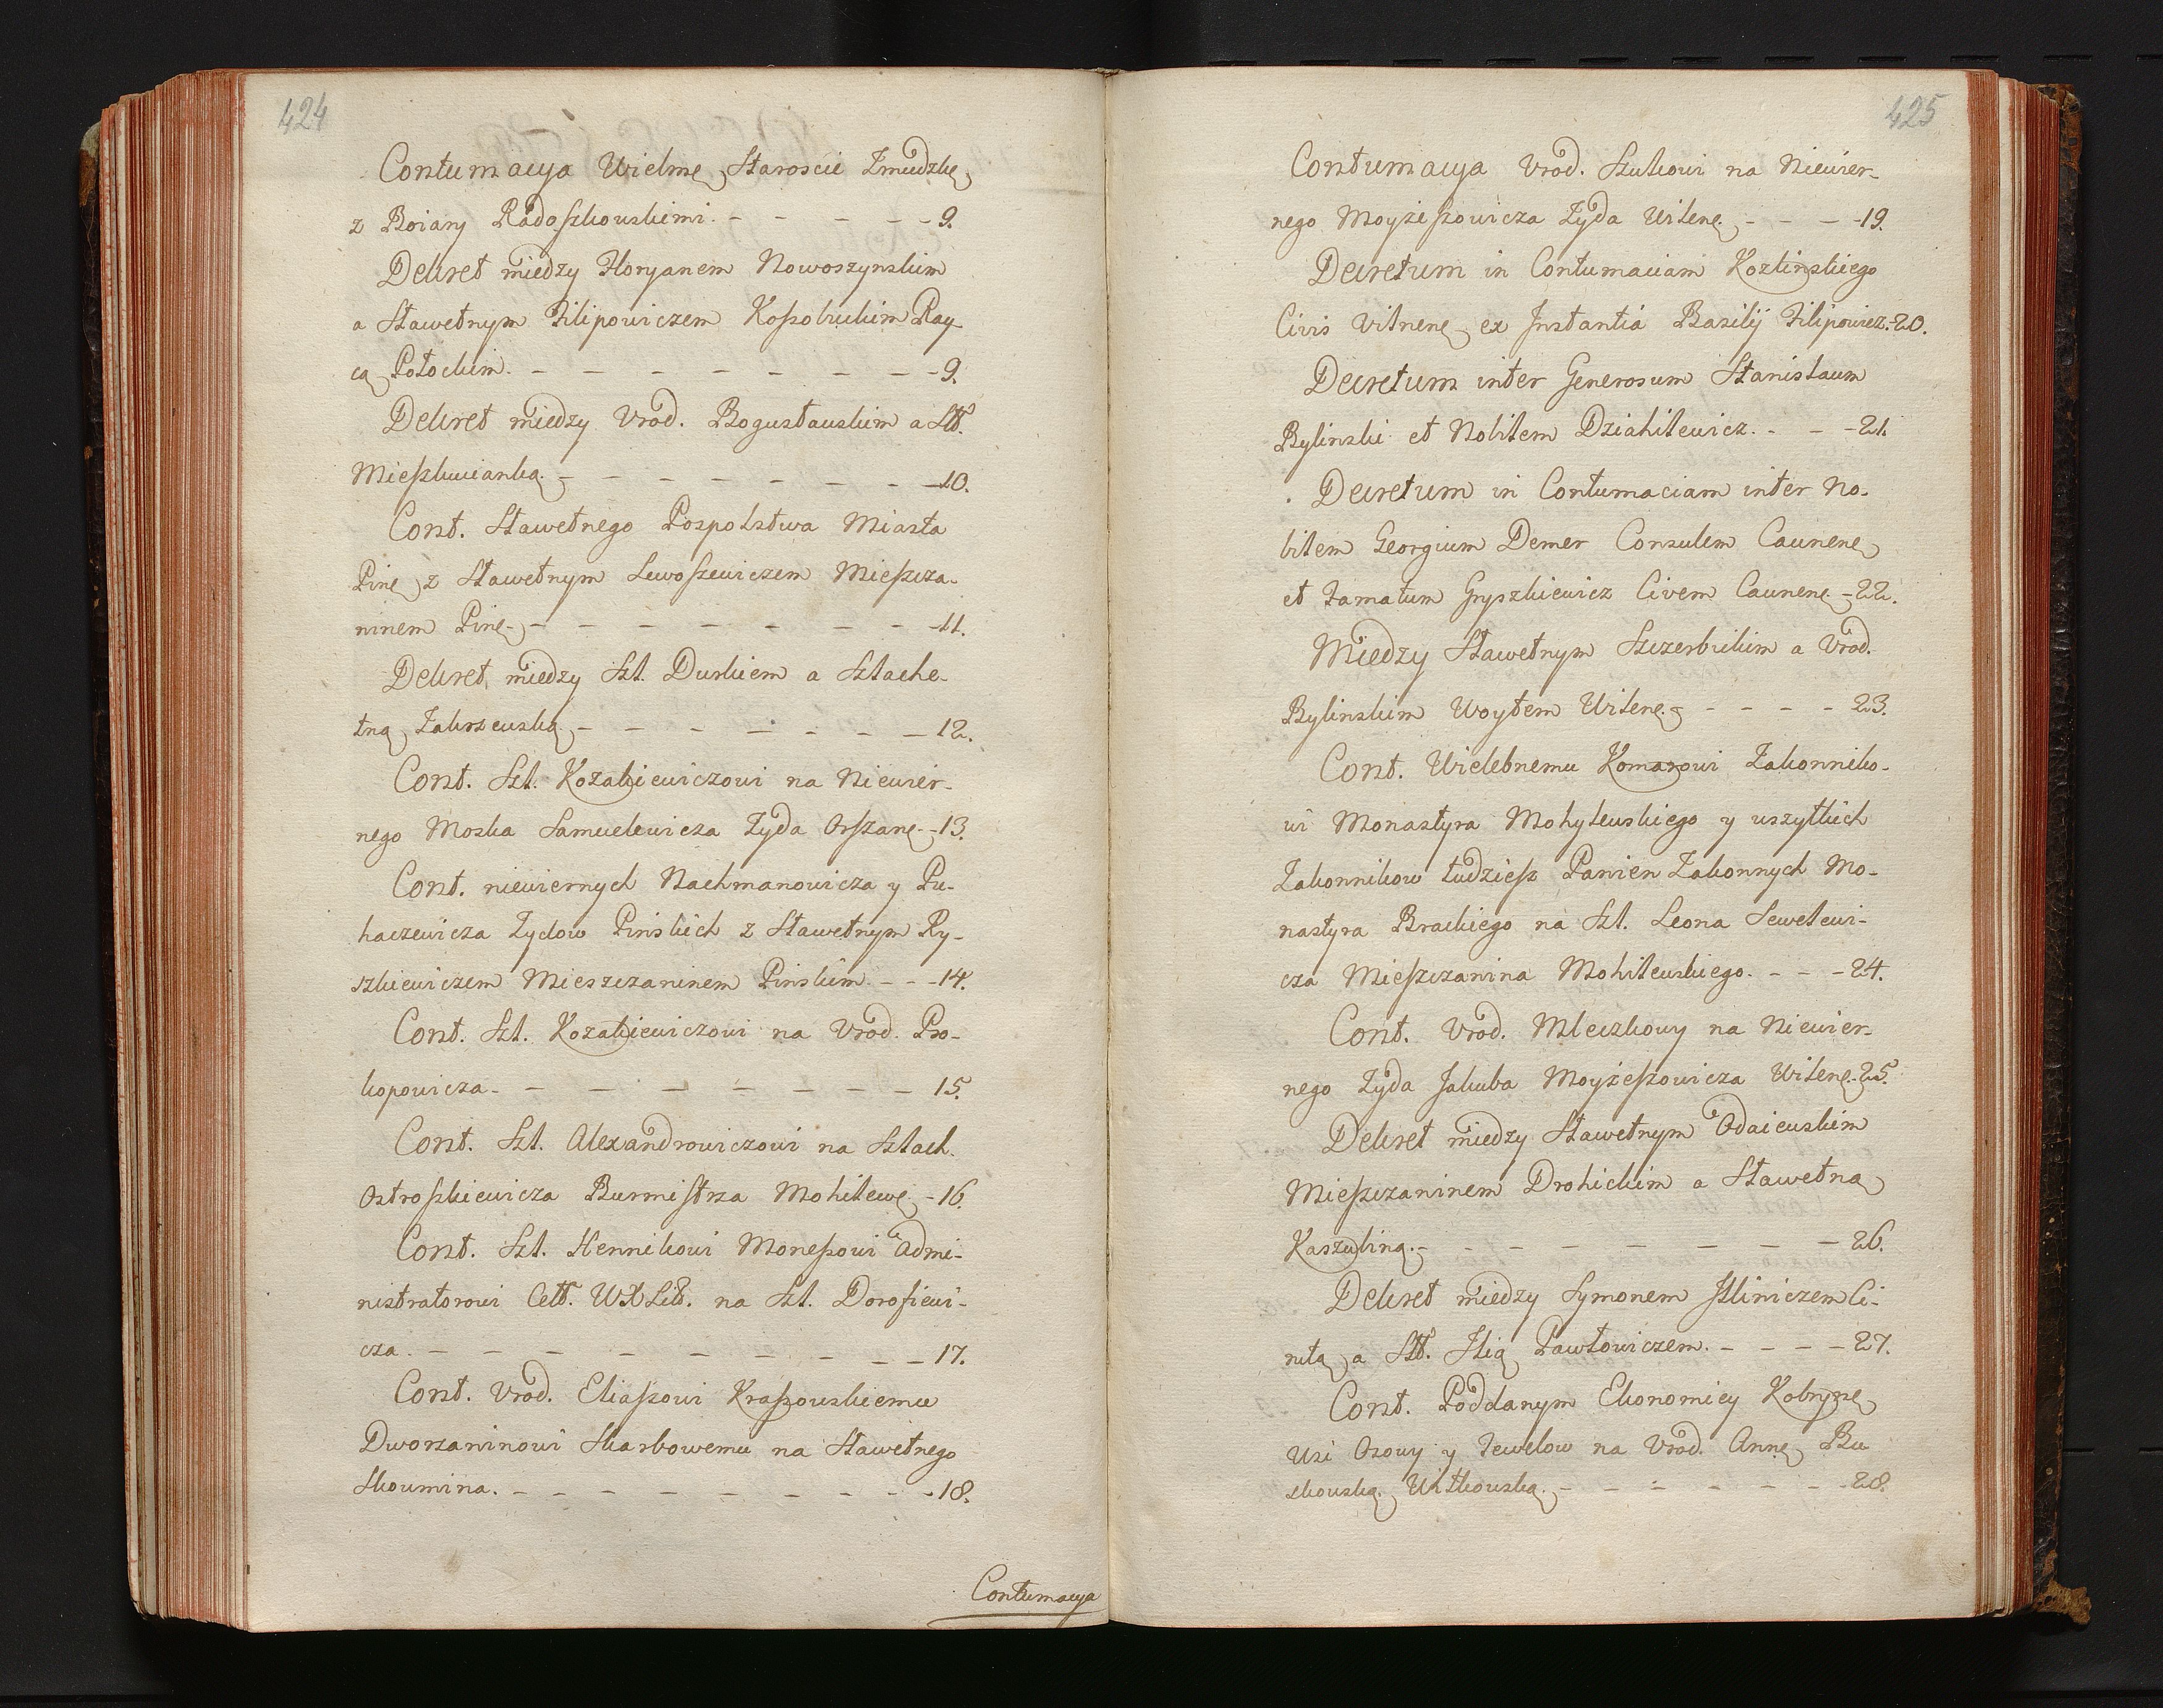 424
Contumacya Wielmę Staroscie Zmudzkę
z Boiary Radoszkowskimi. - - - - - 9.
Dekret miedzy Floryanem Nowoszynskim
a Sławetnym Filipowiczem Koszobuckim Ray
cą Połockim. - - - - - - - - 9.
Dekret miedzy Urod. Bogusławskim a Słt.
Mieszkucianką. - - - - - - - 10.
Cont. Sławetnego Pospolstwa Miasta
Pinę z Sławetnym Lewoszewiczem Mieszcza-
ninem Pinę. - - - - - - - - 11.
Dekret miedzy Szl. Durkiem a Szlache-
tną Zakrzewską. - - - - - - - 12.
Cont. Szl. Kozakiewiczowi na Niewier-
nego Moska Samuelewicza Zyda Orszanę. - 13.
Cont. niewiernych Nachmanowicza y Pu-
haczewicza Zydow Pinskich z Sławetnym Ry-
szkiewiczem Mieszczaninem Pinskim. - - - 14.
Cont. Szl. Kozakiewiczowi na Urod. Pro-
kopowicza. - - - - - - - - 15.
Cont. Szl. Alexandrowiczowi na Szlach.
Ostroszkiewicza Burmistrza Mohilewę. - 16.
Cont. Szl. Hennikowi Moneszowi Admi-
nistratorowi Cełł. WXLitt. na Szl. Dorofiewi-
cza. - - - - - - - - - 17.
Cont. Urod. Eliaszowi Kraszowskiemu
Dworzaninowi Skarbowemu na Sławetnego
Skoumina. - - - - - - - - - 18.
Contumacya
425
Contumacya Urod. Szukowi na Niewier-
nego Moyżeszowicza Zyda Wilenę. - - - 19.
Decretum in Contumaciam Kozlinskiego
Civis Vilnenę ex Instantia Basilij Filipowicz. - 20.
Decretum inter Generosum Stanislaum
Bylinski et Nobilem Dziahilewicz. - - - 21.
Decretum in Contumaciam inter No-
bilem Georgium Demer Consulem Caunenę
et Famatum Gryszkiewicz Civem Caunenę. - 22.
Miedzy Sławetnym Szczerbickim a Urod.
Bylinskim Woytem Wilenę. - - - - - 23.
Cont. Wielebnemu Komarowi Zakonniko-
wi Monastyra Mohylewskiego y wszytkich
Zakonnikow tudziesz Panien Zakonnych Mo-
nastyra Brackiego na Szl. Leona Sewelewi-
cza Mieszczanina Mohilewskiego. - - - 24.
Cont. Urod. Mleczkowy na Niewier-
nego Zyda Jakuba Moyżeszowicza Wilenę. - 25.
Dekret miedzy Sławetnym Odaiewskim
Mieszczaninem Drohickim a Sławetną
Kaszubiną. - - - - - - - - 26.
Dekret miedzy Symonem Iliniczem Ci-
rulą a Słt. Ilią Pawłowiczem. - - - - 27.
Cont. Poddanym Ekonomiey Kobryzę
Wsi Osowy y Tewelow na Urod. Annę Bu
skowską Witkowską. - - - - - - 28.